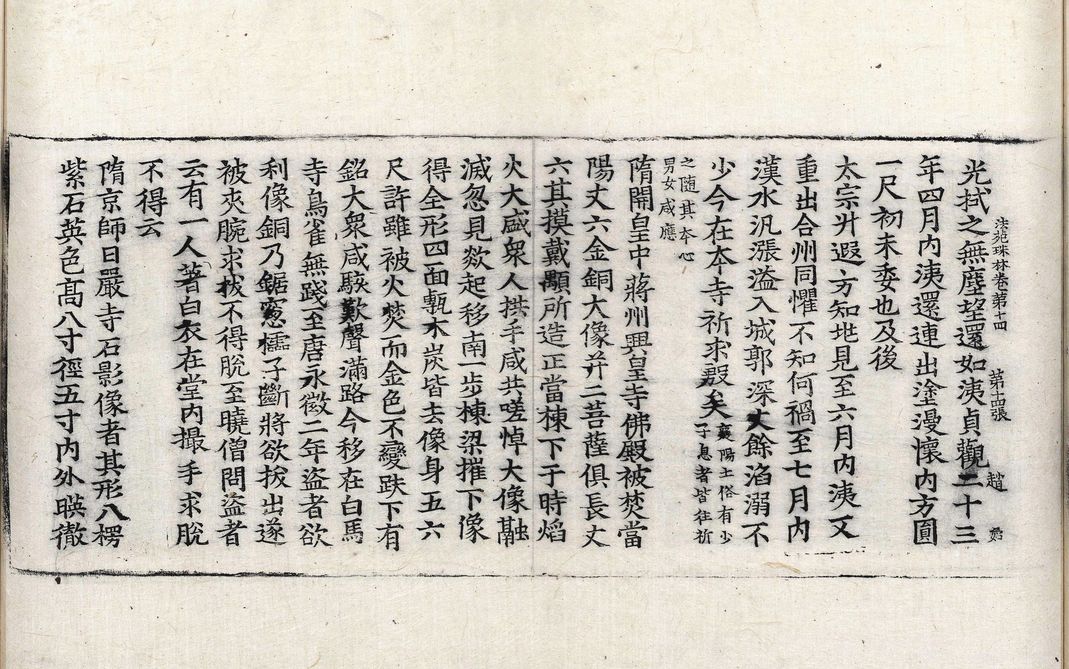 光拭之無塵望還如洟貞觀二十三
法苑珠林卷第十四 第十四張 趙
年四月内洟還連出塗漫懷内方圓
一尺初未委也及後
太宗升遐方知兆見至六月内洟又
重出合州同懼不知何禍至七月内
漢水汎漲溢入城郭深丈餘滔溺不
少今在本寺祈求叚矣襄陽土俗有少子息者皆往祈
之随其本心男女咸應
隋開皇中蔣州興皇寺佛殿被焚當
陽丈六金銅大像并二菩薩俱長丈
六其摸戴顒所造正當棟下于時焰
火大盛衆人拱手咸共嗟悼大像融
滅忽見欻起移南一步棟梁摧下像
得全形四面塼木炭皆去像身五六
尺許雖被火焚而金色不變趺下有
銘大衆咸駭歎聲滿路今移在白馬
寺鳥雀無踐至唐永徽二年盜者欲
利像銅乃鋸窓櫺子斷將欲拔出遂
被夾腕求拔不得脫至曉僧問盜者
云有一人著白衣在堂内撮手求脫
不得云
隋京師日嚴寺石影像者其形八楞
紫石英色高八寸徑五寸内外暎徹